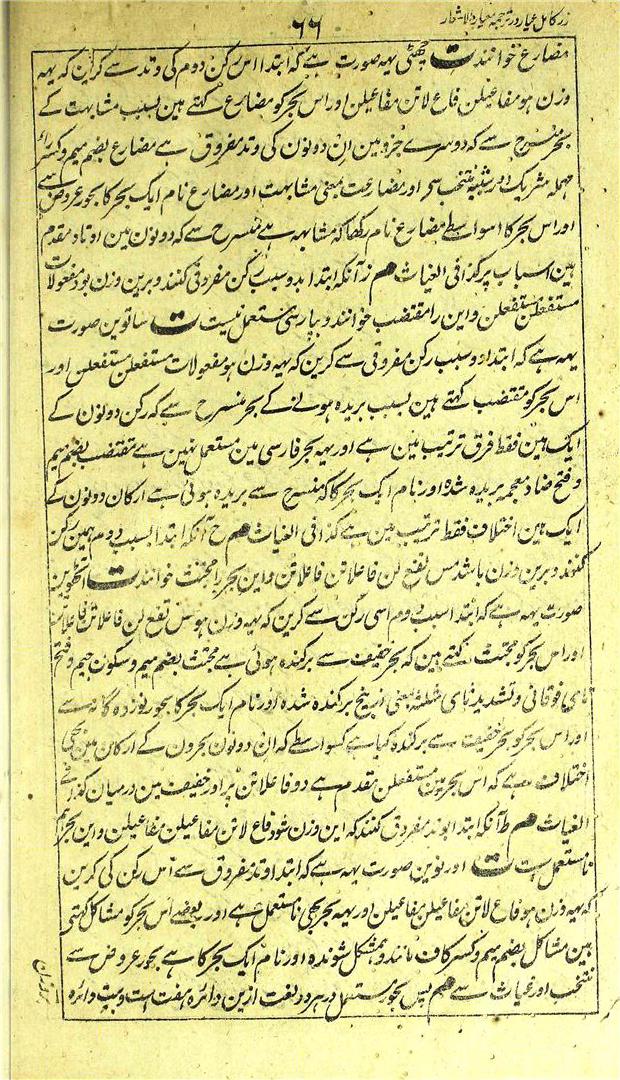 زر کامل عیار در ترجمہ معیار الاشعار
۶۶
مضارع خوانند ت چھٹی یہہ صورت ہے کہ ابتدا اس رکن دوم کی وتد سے کرین کہ یہہ
وزن ہو مفاعیلن فاع لاتن مفاعیلن اور اس بحر کو مضارع کہتے ہین بسبب مشابہت کے
بحر منسرح سے کہ دوسرے جزو مین ان دونون کی وتد مفروق ہے مضارع بضم میم و کسر راے
مہملہ مشریک در شبیہ منتخب سے اور مضارعت بمعنی مشابہت اور مضارع نام ایک بحر کا بحور عروض سے
اور اس بحر کا اسواسطے مضارع نام رکھا کہ مشابہ ہے منسرح سے کہ دونون مین اوتاد مقدم
ہین اسباب پر کذا فی الغیاث م ز آنکہ ابتدا بدو سبب رکن مفروقی کنند و برین وزن بود مفعولات
مستفعلن مستفعلن و این را مقتضب خوانند و بپارسی مستعمل نیست ت ساتوین صورت
یہہ ہے کہ ابتدا دو سبب رکن مفروقی سے کرین کہ یہہ وزن ہو مفعولات مستفعلن مستفعلن اور
اس بحر کو مقتضب کہتے ہین بسبب بریدہ ہونے کے بحر منسرح سے کہ رکن دونون کے
ایک ہین فقط فرق ترتیب مین ہے اور یہہ بحر فارسی مین مستعمل نہین ہے مقتضب بضم میم
و فتح ضاد معجمہ بریدہ شدہ اور نام ایک بحر کا کہ منسرح سے بریدہ ہوئی ہے ارکان دونون کے
ایک ہین اختلاف فقط ترتیب مین ہے کذا فی الغیاث م ح آنکہ ابتدا بسبب دوم ہمین رکن
کنند و برین وزن باشد مس تفع لن فاعلاتن فاعلاتن و این بحر را مجتث خوانند ت آٹھوین
صورت یہہ ہے کہ ابتدا سبب دوم اسی رکن سے کرین کہ یہہ وزن ہو مس تفع لن فاعلاتن فاعلاتن
اور اس بحر کو مجتث کہتے ہین کہ بحر خفیف سے برکندہ ہوئی ہے مجتث بضم میم و سکون جیم و فتح
تای فوقانی و تشدید ثای مثلثہ بمعنی از بیخ برکندہ شدہ اور نام ایک بحر کا بحور نوزدہ گانہ سے
اور اس بحر کو بحر خفیف سے برکندہ کیا ہے کسواسطے کہ ان دونون بحرون کے ارکان مین بھی
اختلاف ہے کہ اس بحر مین مستفعلن مقدم ہے دو فاعلاتن پر اور خفیف مین درمیان کذا فی
الغیاث م ط آنکہ ابتدا بوتد مفروق کنند کہ این وزن شود فاع لاتن مفاعیلن مفاعیلن و این بحر ہم
نامستعمل ست ت اور نوین صورت یہہ ہے کہ ابتدا وتد مفروق سے اس رکن کی کرین
کہ یہہ وزن ہو فاع لاتن مفاعیلن مفاعیلن اور یہہ بحر بھی نامستعمل ہے اور بعضے اس بحر کو مشاکل کہتے
ہین مشاکل بضم میم و کسر کاف مانند و ہمشکل شوندہ اور نام ایک بحر کا ہے بحور عروض سے
منتخب اور غیاث سے م پس بحور مستعمل در ہر دو لغت ازین دائرہ ہفت است و بیت دائرہ